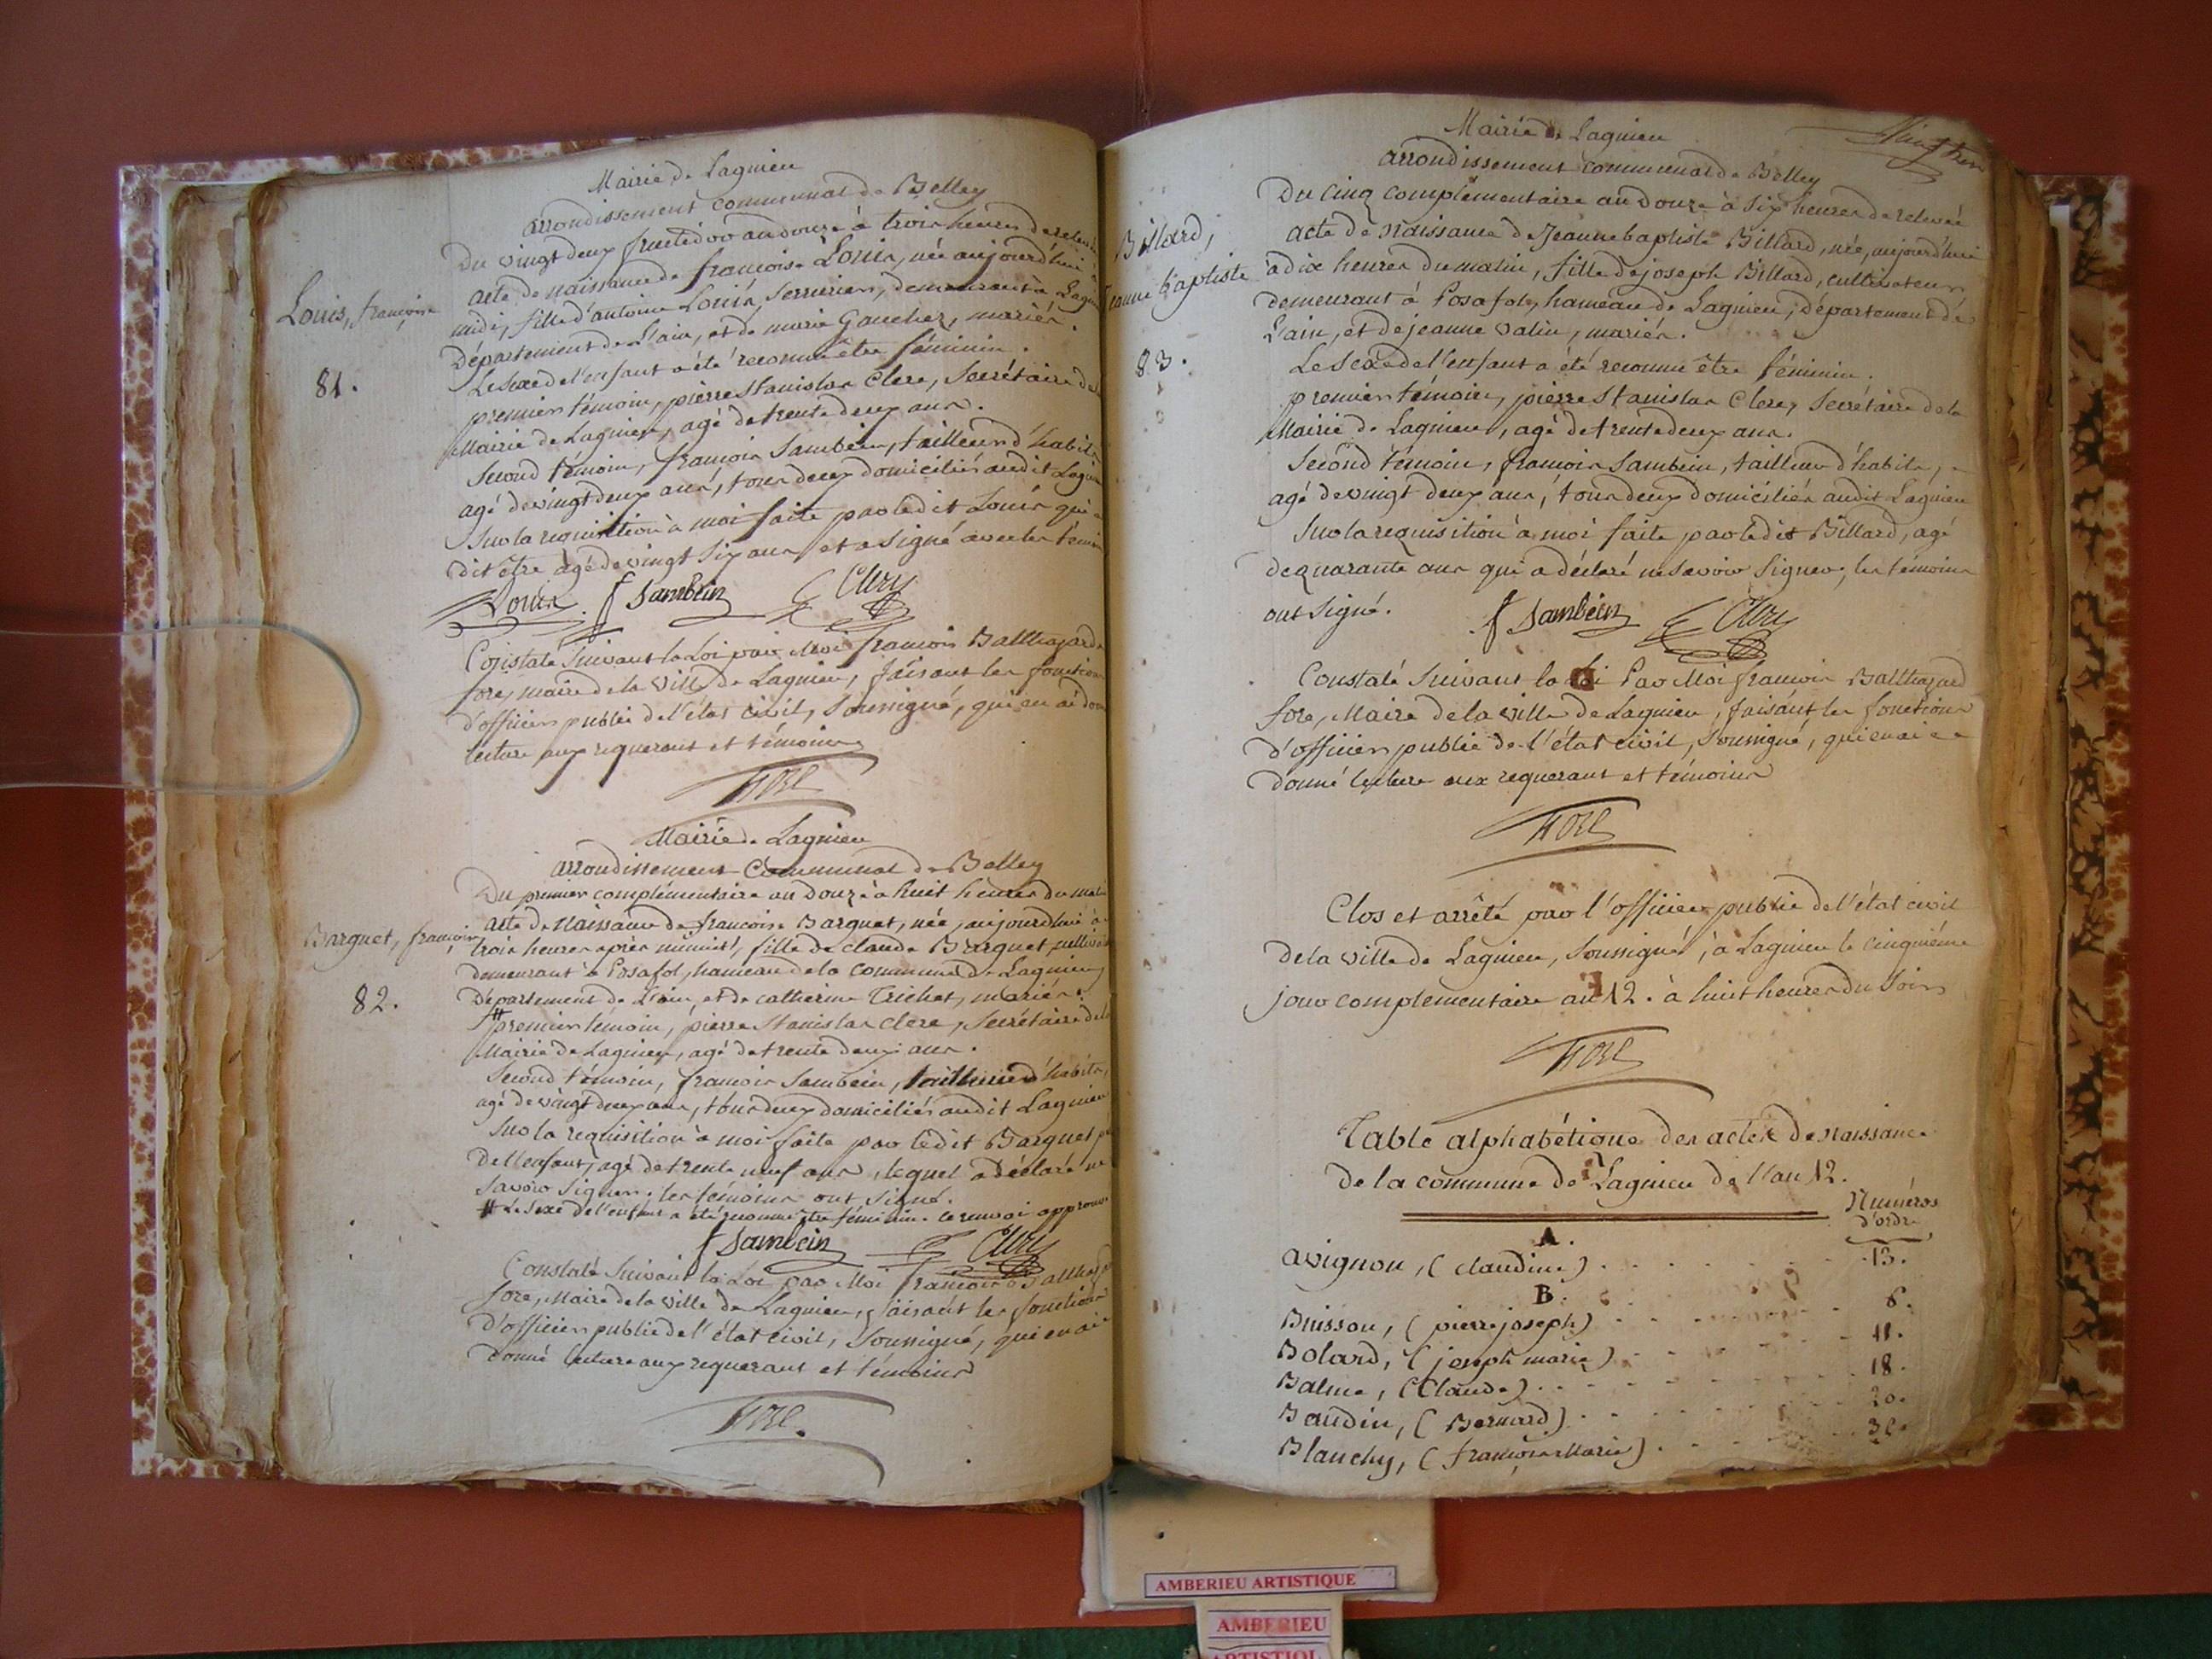 Mairie de Lagnieu
arrondissement communal de Belley
Du vingt deux fructidor an douze à trois heures de
acte de naissance de françoise Louis, née aujourd'hui à
midi, fille d'antoine Louis, serrurier, demeurant à
Département de l'ain, et de marie Gaucher, mariés.
Le sexe de l'enfant a été reconnu être féminin.
premier témoin, pierre Stanislas Clerc, Secrétaire de
Mairie de Lagnieu, agé de trente deux ans.
Second témoin, françois Sambein, tailleur d'habits
agé de vingt deux ans, tous deux domiciliés audit
Sur la requisition à moi faite par ledit Louis qui
dit être agé de vingt six ans et a signé avec les
Louis f Sambein Clerc
Louis, françoise
81.
Constaté suivant la Loi par Moi françois Balthazard
fore, maire de la ville de Lagnieu, faisant les
d'officier public de l'état civil, soussigné, qui en ai
lecture aux requerant et témoins
fore
Mairie de Lagnieu
arrondissement Communal de Belley
Du premier complémentaire an douze à huit heures du
acte de naissance de francoise Barquet, née, aujourdhui à
trois heures après minuit, fille de claude Barquet,
demeurant à Posafol, hameau de la commune de Lagnieu
Département de l'ain, et de catherine Trichet, mariés.
# premier témoin, pierre Stanislas clerc, Secrétaire de
Mairie de Lagnieu, agé de trente deux ans.
Second témoin, françois Sambein, tailleur d'habits,
agé de vingt deux ans, tous deux domiciliés audit Lagnieu
Sur la requisition à moi faite par ledit Barquet
De l'enfant, agé de trente neuf ans, lequel a déclaré ne
savoir signer; les témoins ont signé.
# Le sexe de l'enfant a été reconnu être féminin. le renvoi
f Sambein Clerc
Barquet, françoise
82.
Constaté suivant la Loi par Moi françois
fore, Maire de la ville de Lagnieu, faisant les fonctions
d'officier public de l'état civil, soussigné, qui en ai
donné lecture aux requerant et témoins
fore.
Mairie de Lagnieu
arrondissement communal de Belley
Du cinq complémentaire an douze à six heures de relevée
acte de naissance de Jeanne baptiste Billard, née, aujourd'hui
à dix heures du matin, fille de joseph Billard, cultivateur
demeurant à Posafol, hameau de Lagnieu, département de
L'ain, et de jeanne Valin, mariés.
Le sexe de l'enfant a été reconnu être féminin.
premier témoin, pierre Stanislas Clerc, Secrétaire de la
Mairie de Lagnieu, agé de trente deux ans.
Second témoin, françois Sambein, tailleur d'habits,
agé de vingt deux ans, tous deux domiciliés audit Lagnieu
Sur la requisition à moi faite par ledit Billard, agé
de quarante ans qui a déclaré ne savoir signer; les témoins
ont signé.
f Sambein Clerc
Billard,
Jeanne baptiste
83.
Constaté suivant la Loi Par Moi françois Balthazard
fore, Maire de la ville de Lagnieu, faisant les fonctions
d'officier public de l'état civil, soussigné, qui en ai
donné lecture aux requerant et témoins
fore
Clos et arrêté par l'officier public de l'état civil
de la ville de Lagnieu, soussigné, à Lagnieu le cinquième
jour complementaire an 12. à huit heures du soir
fore
Table alphabétique des actes de naissance
de la commune de Lagnieu de l'an 12.
Numéros
d'ordre
A.
avignon, (claudine) 13.
B.
Buisson, (pierre joseph) 6.
Bolard, (joseph marie) 11.
Balme, (Claude) 18.
Baudin, (Bernard) 20.
Blanchy, (françoise Marie)
AMBERIEU ARTISTIQUE
AMBERIEU
ARTISTIQUE